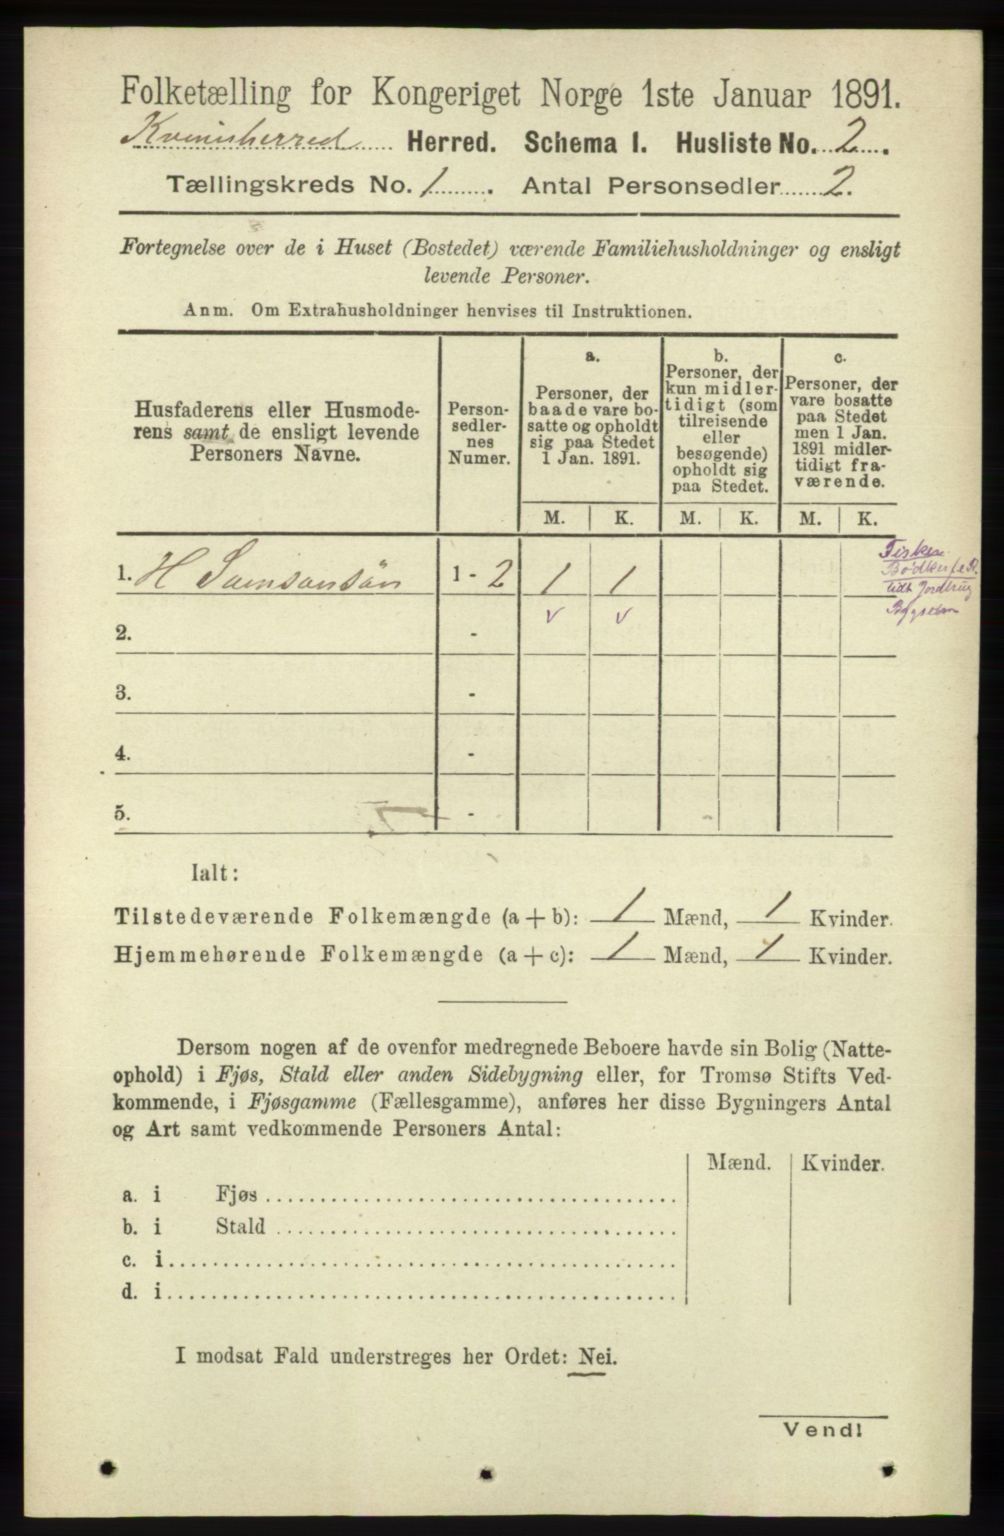 Folketælling for Kongeriget Norge 1ste Januar 1891.
Kvinnherred Herred. Schema 1. Husliste No. 2.
Tællingskreds No. 1. Antal Personsedler 2.
Fortegnelse over de i Huset (Bostedet) værende Familiehusholdninger og ensligt
levende Personer.
Anm. Om Extrahusholdninger henvises til Instruktionen.
Husfaderens eller Husmode-
rens samt de ensligt levende
Personers Navne.
Person-
sedler-
nes
Numer.
a.
Personer, der
baade vare bo-
satte og opholdt
sig paa Stedet
1 Jan. 1891.
b.
Personer, der
kun midler-
tidigt (som
tilreisende
eller
besøgende)
opholdt sig
paa Stedet.
c.
Personer, der
vare bosatte
paa Stedet
men 1 Jan.
1891 midler-
tidigt fra-
værende.
M. K. M. K. M. K.
1. H Samsonsön 1 - 2 1 1
Fisker
lidt Jordbrug
v v
2. -
3. -
4. -
5. -
Ialt:
Tilstedeværende Folkemængde (a + b): 1 Mænd, 1 Kvinder.
Hjemmehørende Folkemængde (a + c): 1 Mænd, 1 Kvinder.
Dersom nogen af de ovenfor medregnede Beboere havde sin Bolig (Natte-
ophold) i Fjøs, Stald eller anden Sidebygning eller, for Tromsø Stifts Ved-
kommende, i Fjøsgamme (Fællesgamme), anføres her disse Bygningers Antal
og Art samt vedkommende Personers Antal:
Mænd. Kvinder.
a. i Fjøs
b. i Stald
c. i
d. i
I modsat Fald understreges her Ordet: Nei.
Vend!